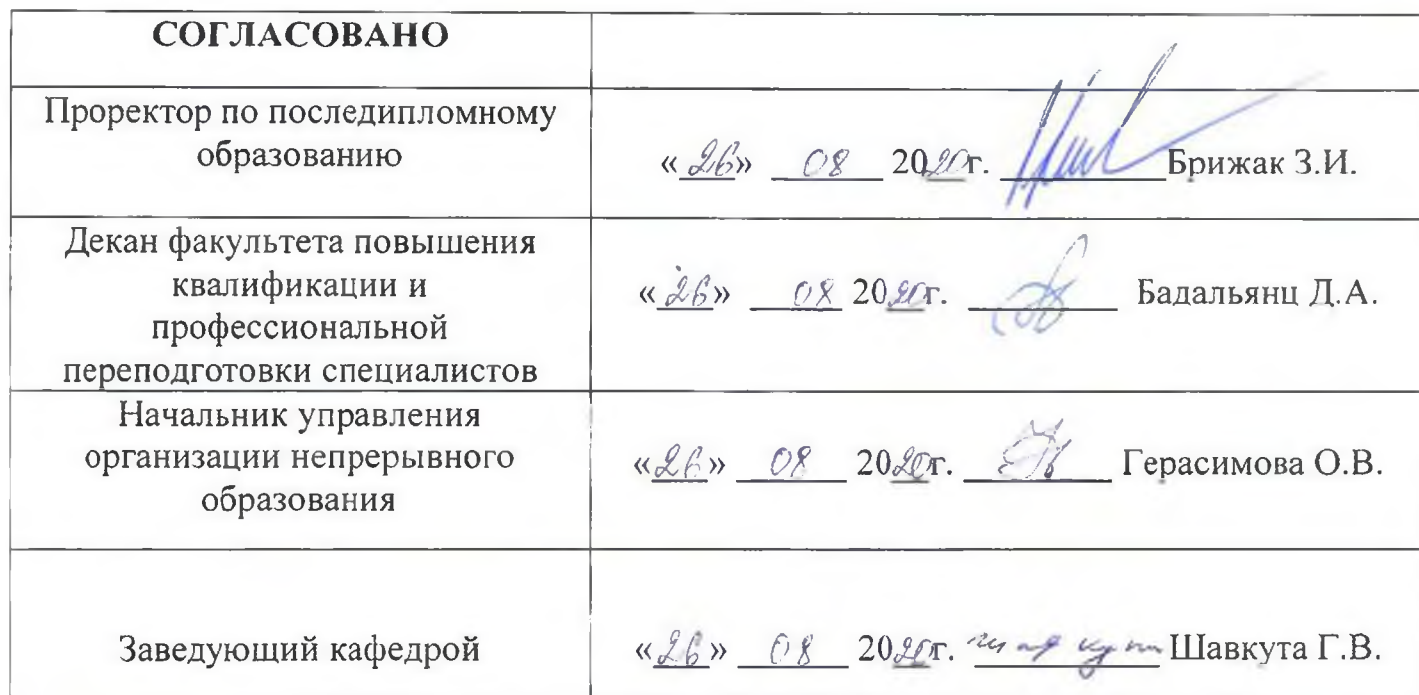 СОГЛАСОВАНО
Проректор по последипломному
образованию
«26» 08 2020г. Брижак З.И.
Декан факультета повышения
квалификации и
профессиональной
переподготовки специалистов
«26» 08 2020г. Бадальянц Д.А.
Начальник управления
организации непрерывного
образования
«26» 08 2020г. Герасимова О.В.
Заведующий кафедрой
«26» 08 2020г. Шавкута Г.В.